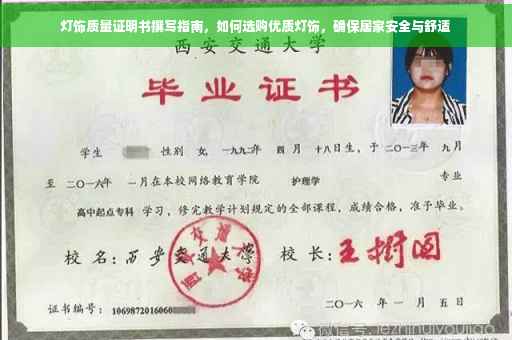 灯饰质量证明书撰写指南，如何选购优质灯饰，确保居家安全与舒适
西安交通大学
毕业证书
学生 性别 女，一九九二年 四月 十八日生，于二〇一三年 九月
至 二〇一六年 一月在本校网络教育学院 护理学 专业
高中起点专科 学习，修完教学计划规定的全部课程，成绩合格，准予毕业。
校名：西安交通大学 校长：王树国
证书编号：1069872016060
二〇一六 年 一 月 五 日
微信号:jezhihuiyoujiao